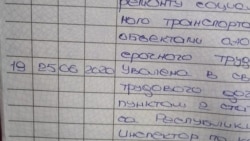 ремонту социал
ного транспорта
объектами
срочного труд
19 25 06 2020 Уволена в св
трудового дог
пунктом 2 ста
са Республики
инспектор по к